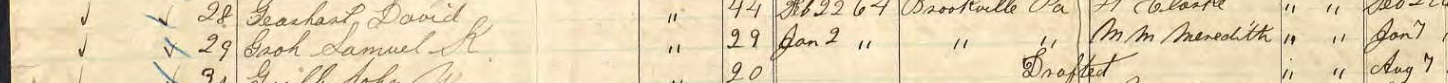 28 Gearhart David " 44 Feb 22 64 Brookville Pa H Clarke " " Feb
29 Groh Samuel K " 29 Jan 2 " " " M M Meredith " " Jan 7 "
20 Drafted " " Aug 7